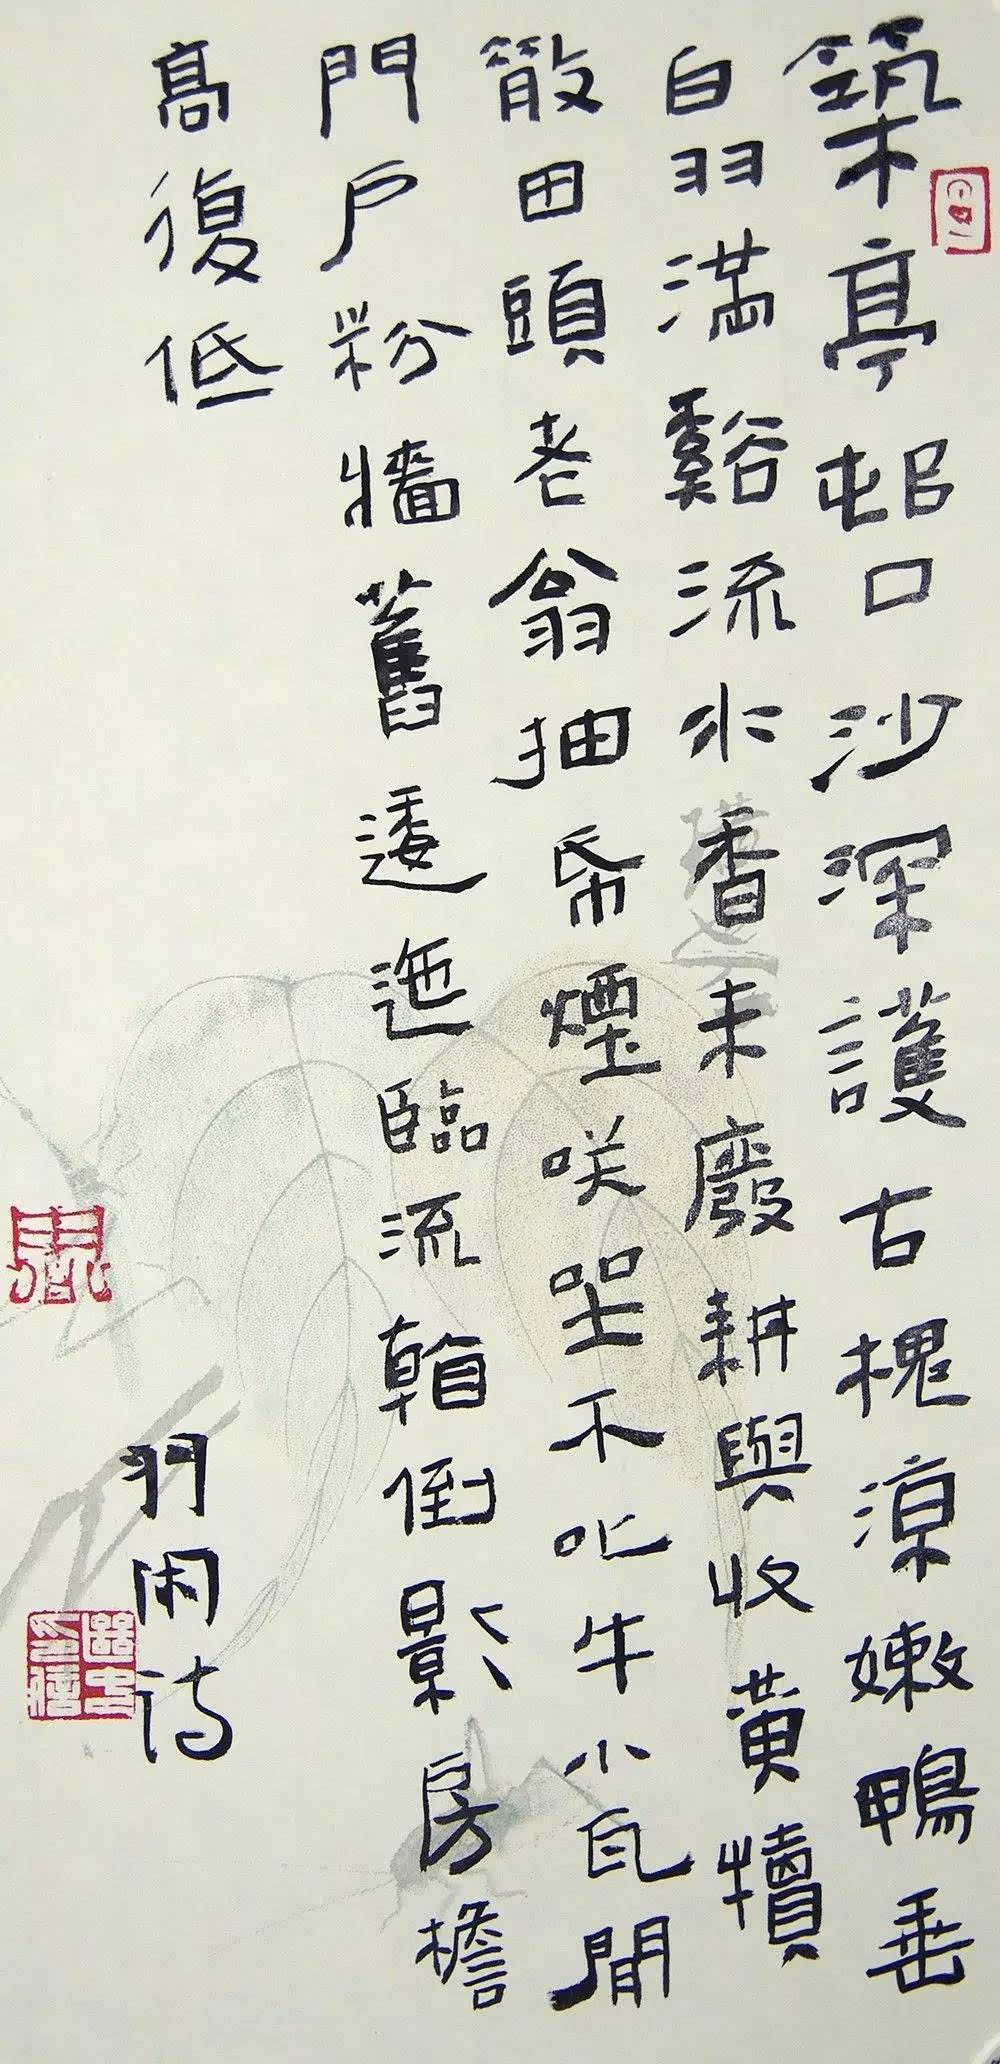 築亭邨口沙深護古槐涼嫩鴨垂
白羽滿谿流水香未廢耕與收黃犢
散田頭老翁抽帋煙咲坐不叱牛小瓦閒
門戶粉牆舊逶迤臨流翰倒影房檐
高復低
羽閑詩